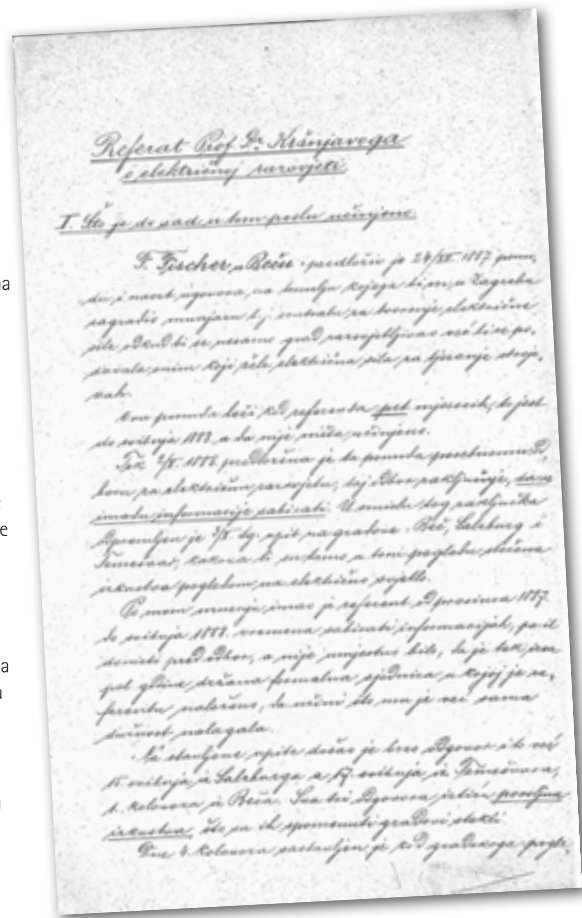 Referat Prof Dr Kršnjavega
o električnoj rasvjeti
I. Što je do sad u tom poslu učinjeno.
F. Fischer u Beču predložio je 24/XII. 1887 ponu,
du i nacrt ugovora, na temelju kojega bi on u Zagrebu
sagradio munjaru t.j. centralu za tvorenje električne
sile, odkud bi se nesamo grad razsvjetljivao već bi se po,
davala svim koji žele električna sila za tjeranje stroje,
vah.
Ova ponuda leži kod referenta pet mjeseci, to jest
do svibnja 1888, a da nije ništa učinjeno.
Tek 2/V. 1888. predložena je ta ponuda posebnomu Od,
boru za električnu razsvjetu, taj odbor zaključuje, da se
imadu informacije sabirati. U smislu tog zaključka
odpremljen je tg. upit na gradove: Beč, Salzburg i
Temešvar, kakova bi se tamo u tom pogledu stečena
izkustva pogledom na električno svjetlo.
Po mom mnenju imao je referent od prosinca 1887.
do svibnja 1888. vremena sabirati informacijah, pa ih
donieti pred odbor, a nije umjestno bilo, da je tek
pol godine držana formalna sjednica u kojoj je re,
ferentu naloženo, da učini što mu je već sama
dužnost nalagala.
Na stavljene upite došao je brzo odgovor i to već
15. svibnja iz Salzburga a 17. svibnja iz Temešvara,
1. kolovoza iz Beča. Sva tri odgovora ističu povoljna
izkustva, što su ih spomenuti gradovi stekli.
Dne 4. kolovoza sastavljen je kod gradskoga pogla,
na
e
a
a